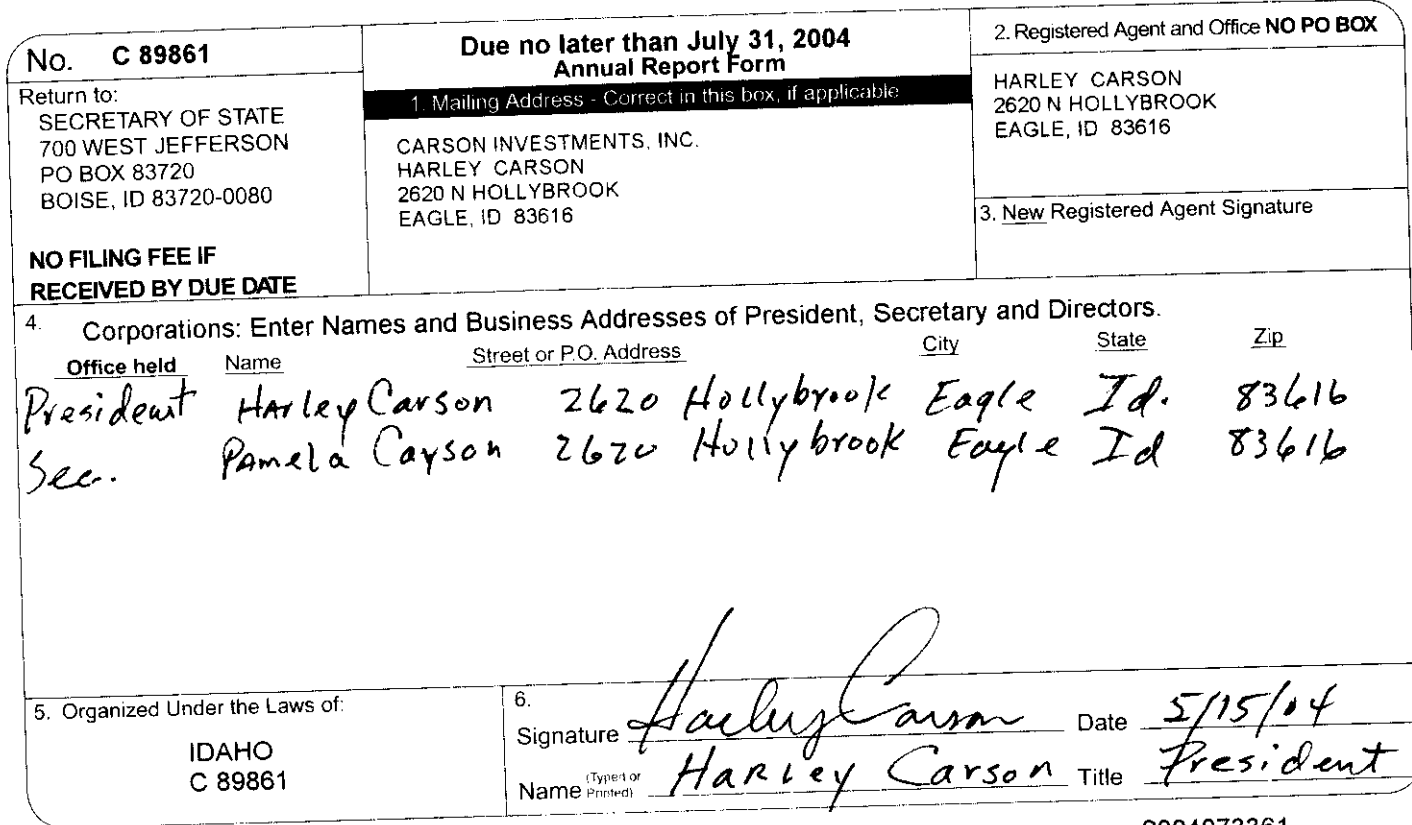 No. C 89861
Return to:
SECRETARY OF STATE
700 WEST JEFFERSON
PO BOX 83720
BOISE, ID 83720-0080
NO FILING FEE IF
RECEIVED BY DUE DATE
Due no later than July 31, 2004
Annual Report Form
1. Mailing Address - Correct in this box, if applicable
CARSON INVESTMENTS, INC.
HARLEY CARSON
2620 N HOLLYBROOK
EAGLE, ID 83616
2. Registered Agent and Office NO PO BOX
HARLEY CARSON
2620 N HOLLYBROOK
EAGLE, ID 83616
3. New Registered Agent Signature
4. Corporations: Enter Names and Business Addresses of President, Secretary and Directors.
Office held Name Street or P.O. Address City State Zip
President Harley Carson 2620 Hollybrook Eagle Id. 83616
Sec. Pamela Carson 2620 Hollybrook Eagle Id 83616
5. Organized Under the Laws of:
IDAHO
C 89861
6.
Signature Harley Carson Date 5/15/04
Name (Typed or Printed) Harley Carson Title President